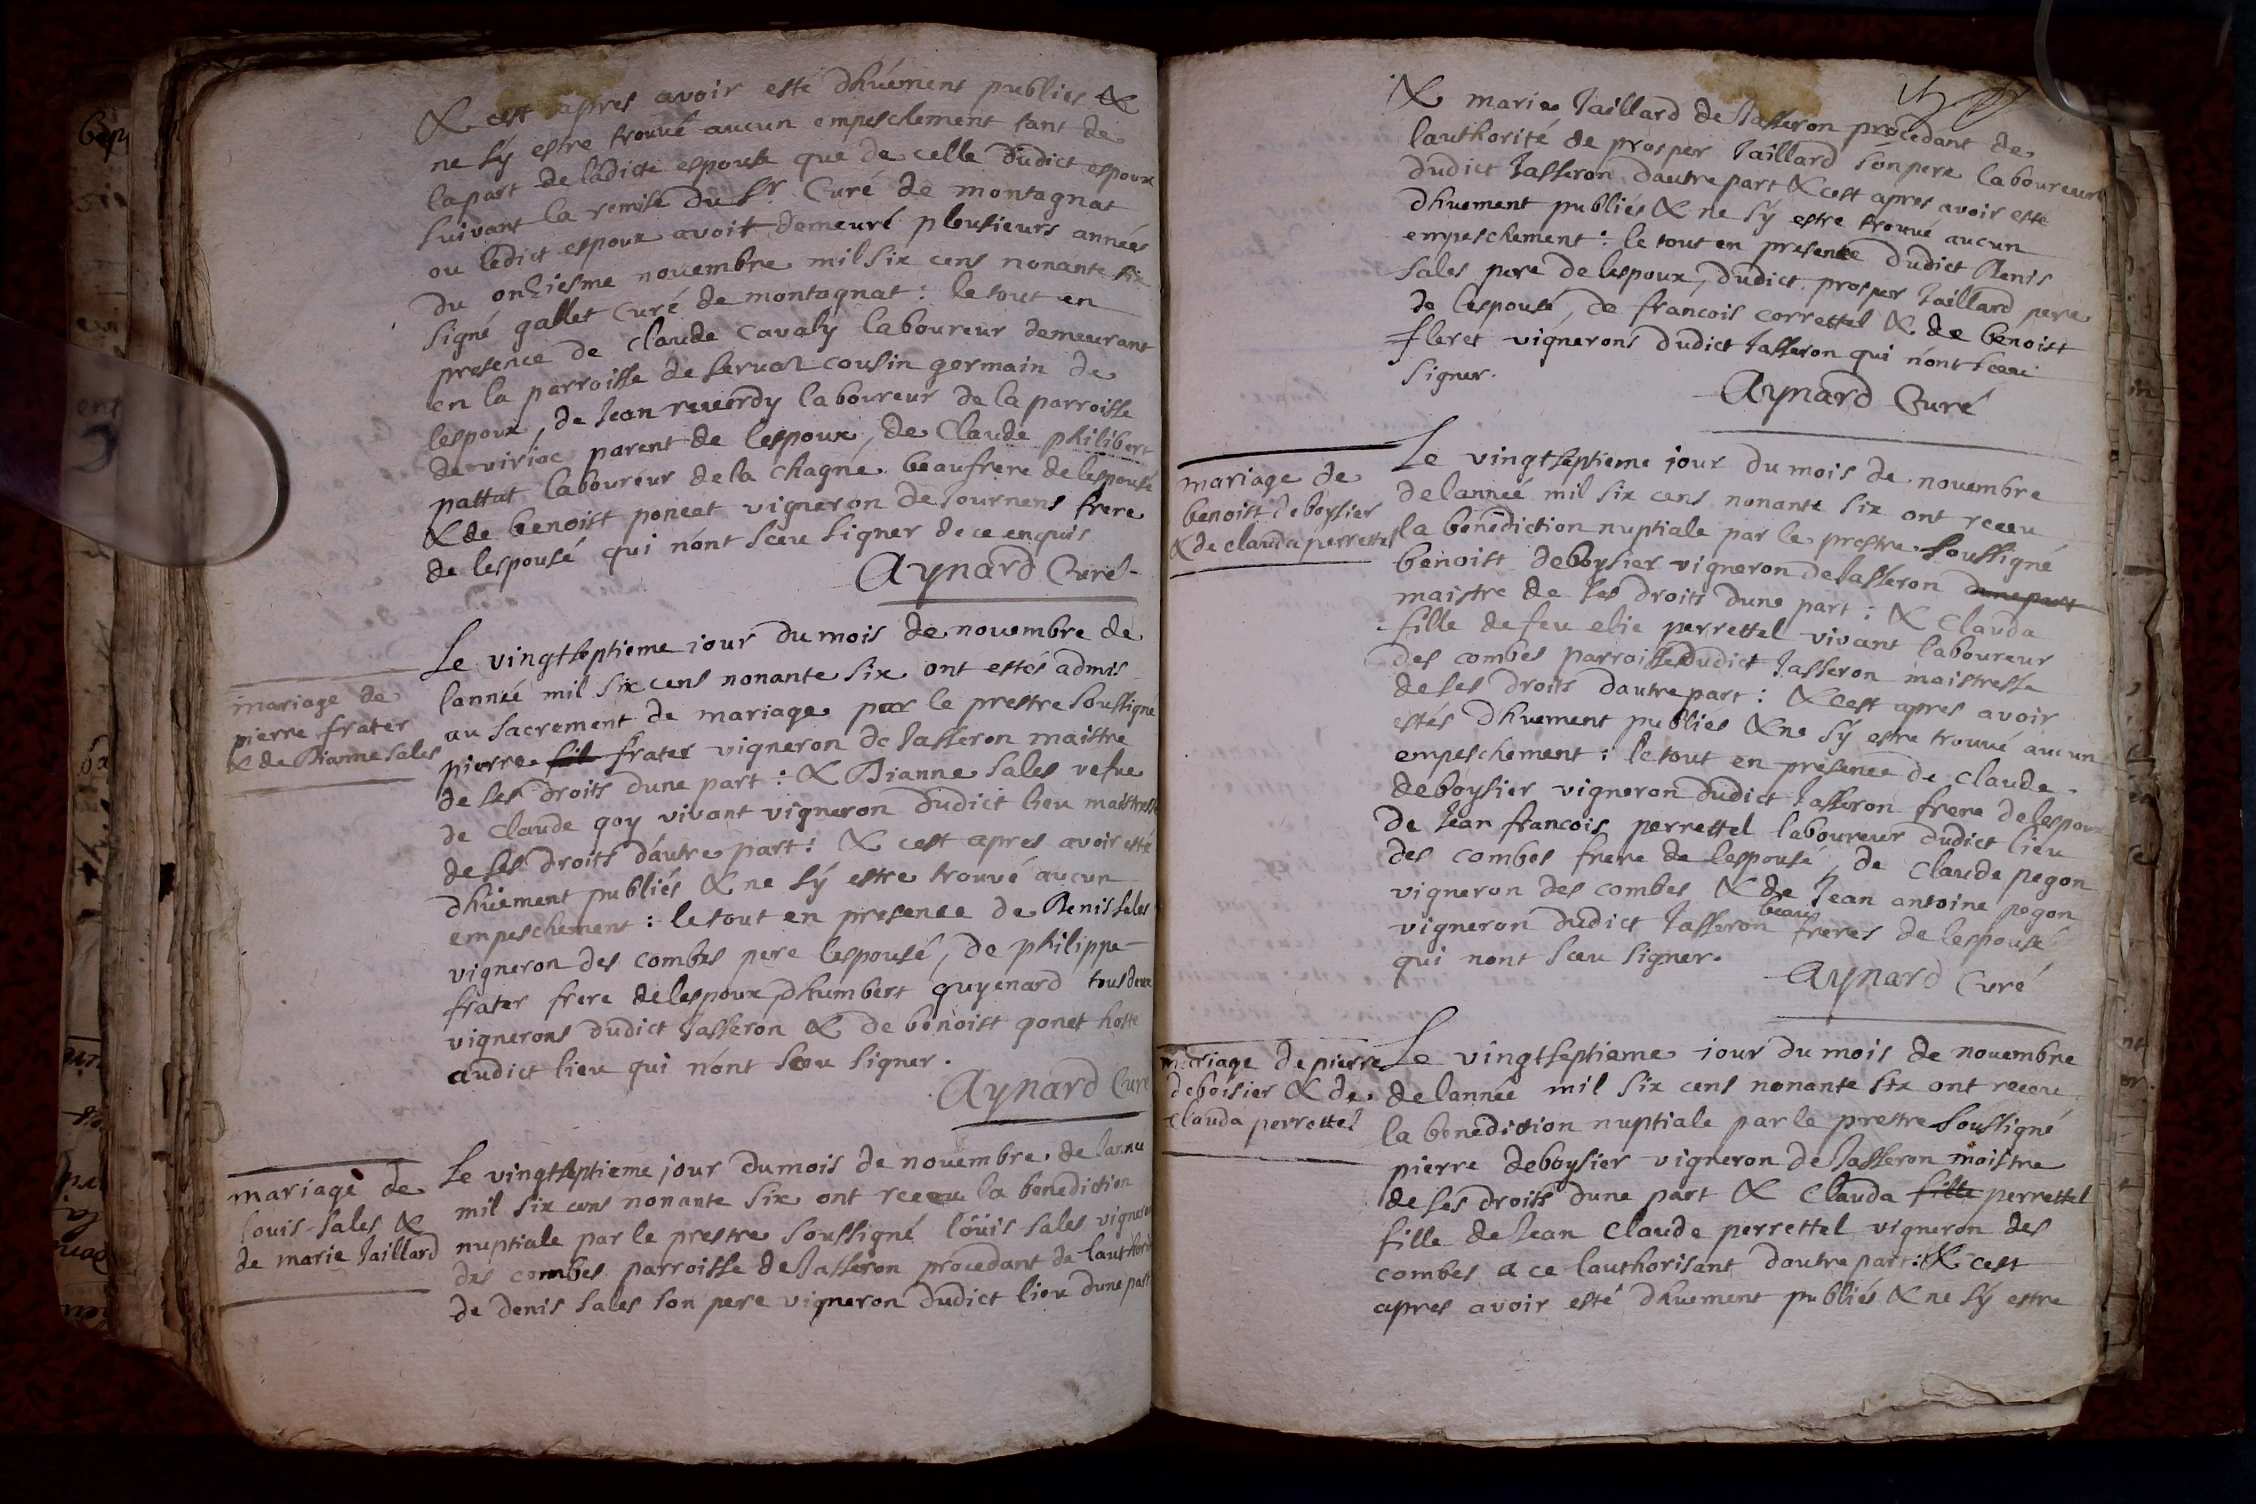 & cest apres avoir esté dhüement publies &
ne sÿ estre trouvé aucun empeschement tant de
la part de ladicte espouse que de celle dudict espoux
suivant la remise du Sr. Curé de montagnat
ou ledict espoux avoit demeuré plousieurs années
du onziesme novembre mil six cens nonante six
signé gallet Curé de montagnat : le tout en
presence de claude cavaly laboureur demeurant
en la parroisse de servaz cousin germain de
lespoux, de Jean reverdy laboureur de la parroisse
de viriac parent de lespoux, de Claude philibert
pattat laboureur de la chagne beaufrere de lespousé
& de benoist poncet vigneron de Journens frere
de lespousé qui nónt sceu signer de ce enquis
Aynard Curé
mariage de
pierre frater
& de Dianne sales
Le vingtseptieme jour du mois de novembre de
lannée mil six cens nonante six ont estés admis
au sacrement de mariage par le prestre soussigné
pierre fil frater vigneron de Jasseron maistre
de ses droits dune part : & Dianne sales vefve
de Claude goy vivant vigneron dudict lieu maistresse
de ses droits dáutre part : & cest apres avoir esté
dhüement publiés & ne sÿ estre trouvé aucun
empeschement : le tout en presence de Denis sales
vigneron des combes pere lespousé, de philippe
frater frere de lespoux, dhumbert guyenard tous deux
vignerons dudict Jasseron & de benoist gonet hoste
audict lieu qui nónt sceu signer.
Aynard Curé
mariage de
louis sales &
de marie Jaillard
Le vingtseptieme jour du mois de novembre de lannee
mil six cens nonante six ont receu la benediction
nuptiale par le prestre soussigné loüis sales vigneron
des combes parroisse de Jasseron procedant de lauthorité
de denis sales son pere vigneron dudict lieu dune part
& marie Jaillard de Jasseron procedant de
lauthorité de prosper Jaillard son pere laboureur
dudict Jasseron dautre part & cest apres avoir esté
dhuement publiés & ne sÿ estre trouvé aucun
empeschement : le tout en presence dudict Denis
sales pere de lespoux, dudict prosper Jaillard pere
de lespousé, de francois correttel & de benoist
fleret vignerons dudict Jasseron qui nónt sceu
signer.
Aynard Curé
mariage de
benoist deboysier
& de clauda perrettel
Le vingtseptieme jour du mois de novembre
de lanneé mil six cens nonante six ont receu
la bénédiction nuptiale par le prestre soussigné
benoist deboysier vigneron de Jasseron dune part
maistre de ses droits dune part : & clauda
fille de feu elie perrettel vivant laboureur
des combes parroisse dudict Jasseron maistresse
de ses droits dautre part : & cest apres avoir
estés dhuement publies & ne sÿ estre trouvé aucun
empeschement : le tout en presence de claude
deboysier vigneron dudict Jasseron frere de lespoux
de Jean francois perrettel laboureur dudict lieu
des combes frere de lespousé, de claude pegon
vigneron des combes & de Jean antoine pegon
vigneron dudict Jasseron beaux freres de lespousé
qui nont sceu signer.
Aynard Curé
mariage de pierre
deboisier & de
clauda perrettel
Le vingtseptieme jour du mois de novembre
de lannée mil six cens nonante six ont receu
la benediction nuptiale par le prestre soussigné
pierre deboysier vigneron de Jasseron moistre
de ses droits dune part & clauda fille perrettel
fille de Jean Claude perrettel vigneron des
combes a ce lauthorisant dautre part : & cest
apres avoir esté dhuement publiés & ne sÿ estre